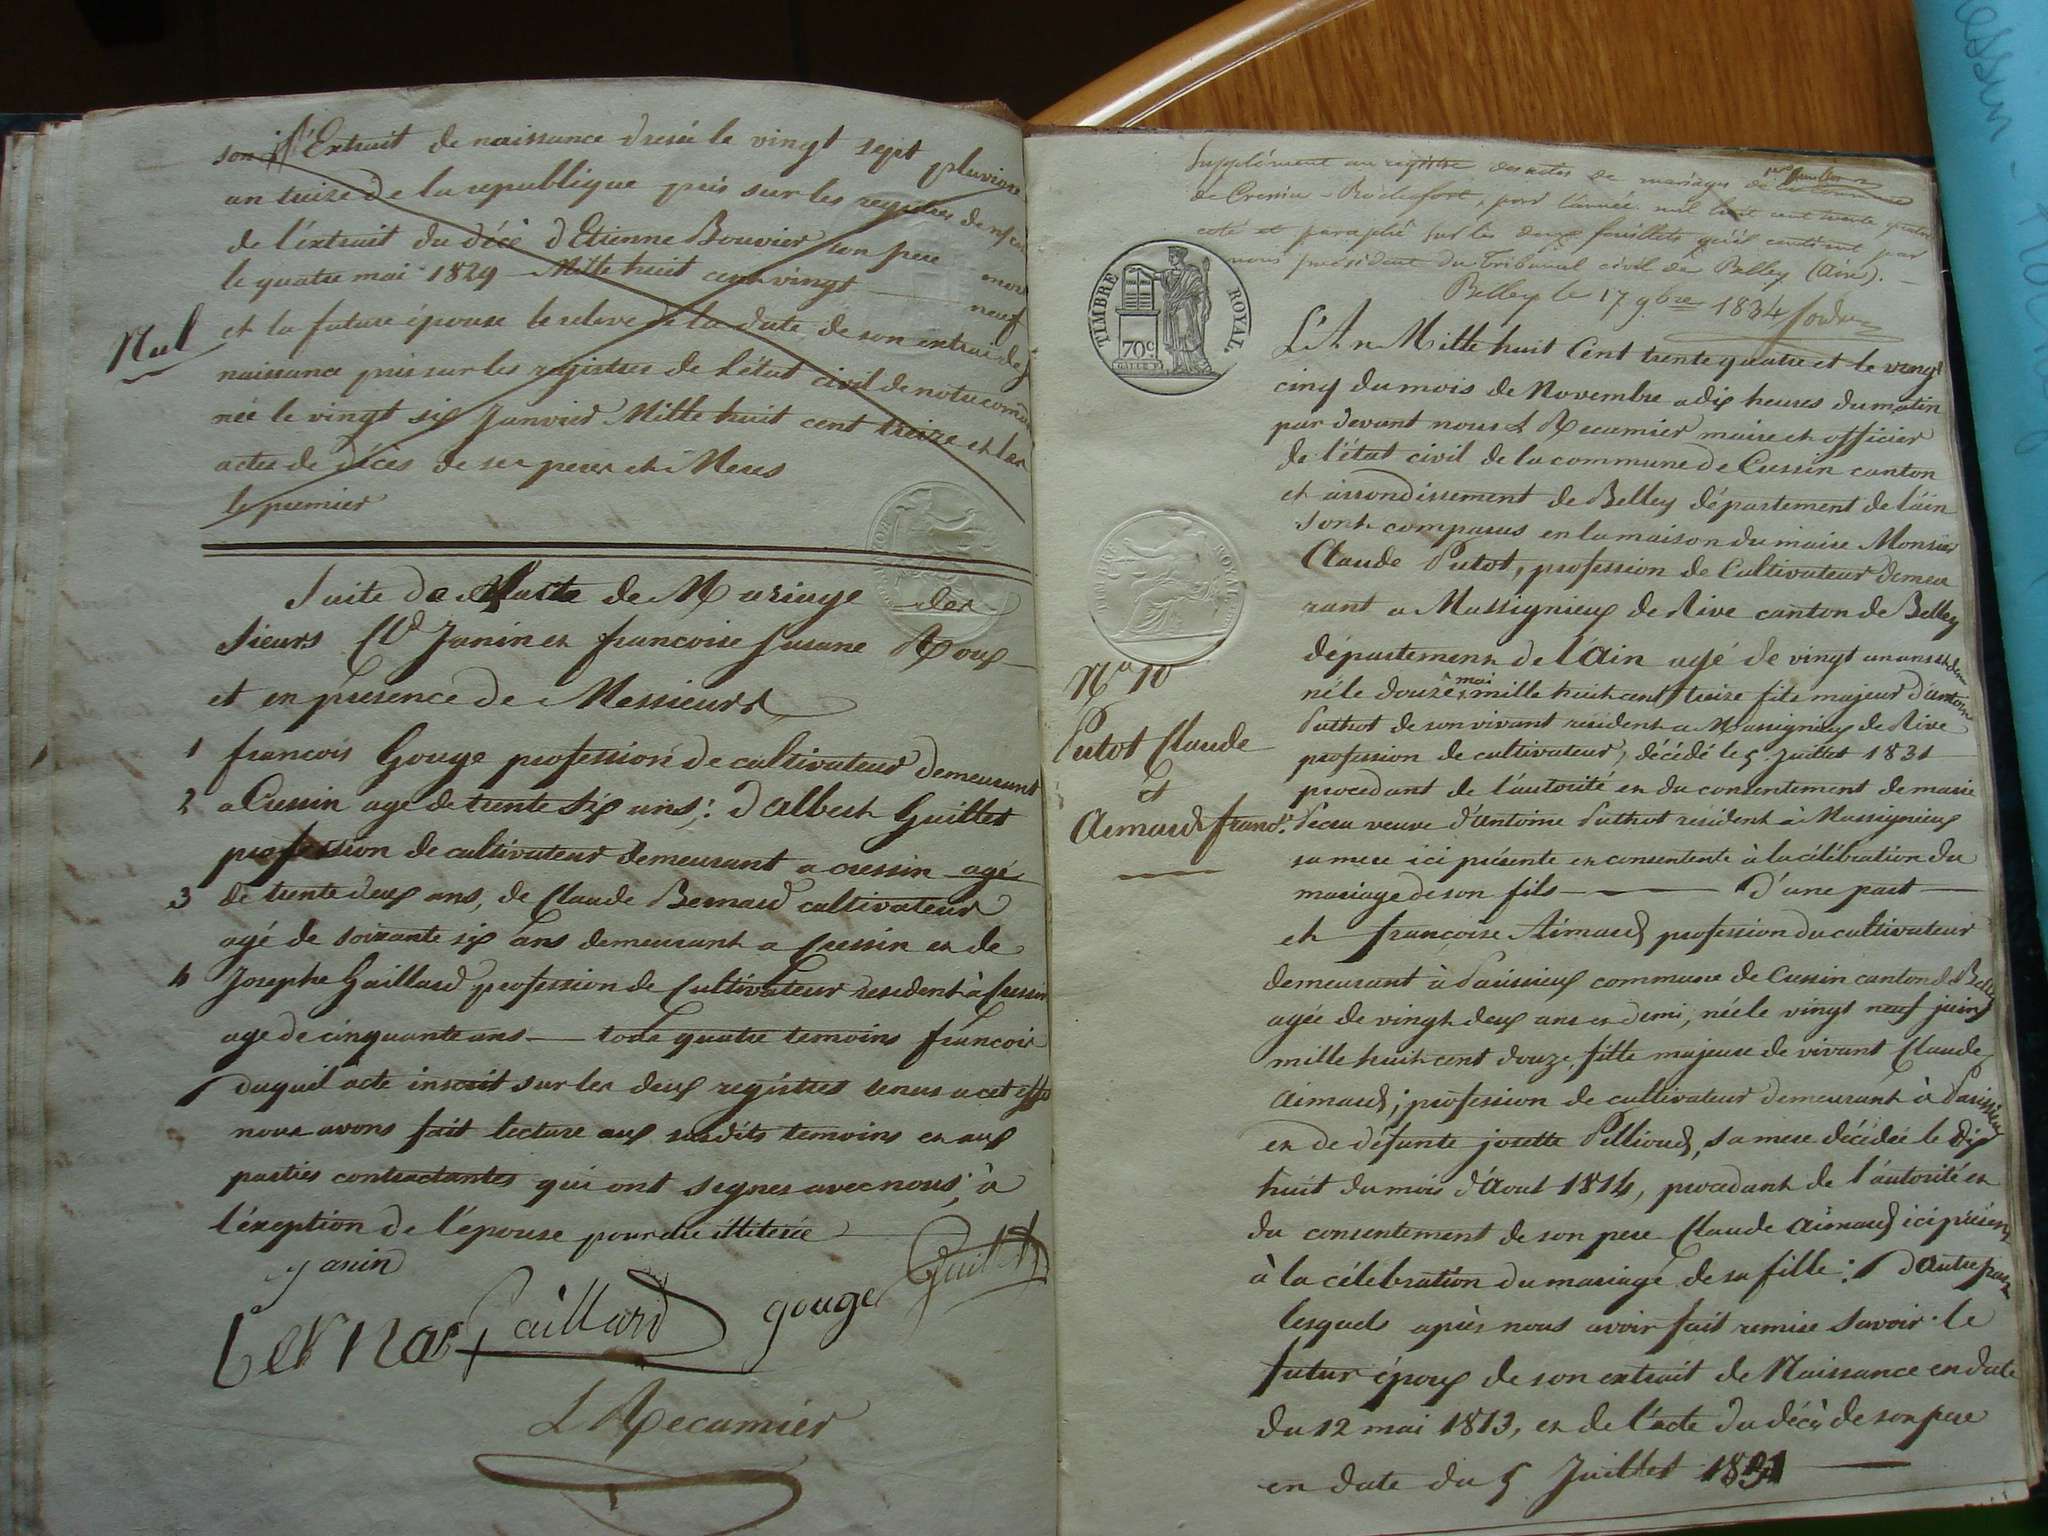 son l'Extrait de naissance dressé le vingt sept pluviose
an treize de la republique pris sur les registres de
de l'éxtrait du décè d'Etienne Bouvier son pere mort
le quatre mai 1829 Mille huit cent vingt neuf
et la future épouse le releve de la date de son extrait de
Nul
naissance pris sur les registres de l'état civil de notre com
née le vingt six Janvier Mille huit cent treize et les
actes de décès de ses peres et Meres
le premier
Suite de l'acte de Mariage des
Sieurs Cld Janin et francoise Susane Roux
et en présence de Messieurs
1 francois Gouge profession de cultivateur demeurant
2 a Cressin age de trente six ans; d'albert Guillet
profession de cultivateur demeurant a cressin agé
3 de trente deux ans, de Claude Bernard cultivateur
agé de soixante six ans demeurant a Cressin et de
4 Josephe Gaillard profession de Cultivateur résident à Cressin
age de cinquante ans — tous quatre temoins francois
duquel acte inscrit sur les deux registres tenus a cet effet
nous avons fait lecture aux susdits temoins et aux
parties contractantes qui ont signés avec nous, à
l'éxception de l'épouse pour être illiterée
Janin
bernard Gaillard gouge Guillet
L Recamier
Supplément au registre des actes de mariages de
de Cressin-Rochefort, pour l'année mil huit cent trente quatre
coté et paraphé sur les deux feuillets qu'il contient par
nous président du Tribunal civil de Belley (Ain).
Belley le 17 9bre 1834
TIMBRE ROYAL.
70c
L'An Mille huit Cent trente quatre et le vingt
cinq du mois de Novembre a dix heures du matin
par devant nous L Recamier maire et officier
de l'état civil de la commune de Cressin canton
et arrondissement de Belley département de l'ain
sont comparus en la maison du maire Monsieur
Claude Putot, profession de Cultivateur demeu
rant a Massignieux de Rive canton de Belley
département de l'Ain agé de vingt un ans et demi
né le douze mai mille huit cent treize fils majeur d'antoine
Puthot de son vivant resident a Massignieux de Rive
profession de cultivateur, décédé le 5 Juillet 1831
procedant de l'autorité et du consentement de marie
veuve d'Antoine Puthot résident à Massignieux
sa mere ici présente et consentente à la célébration du
mariage de son fils — d'une part —
No 10
Putot Claude
Et
Aimard franc.se
et françoise Aimard profession du cultivateur
demeurant à Parissieux commune de Cressin canton de Belley
agée de vingt deux ans et demi, née le vingt neuf juin
mille huit cent douze, fille majeure de vivant Claude
Aimard; profession de cultivateur demeurant à Parissieux
et de défunte josette Pellioud, sa mere décédée le dix
huit du mois d'Aout 1814, procedant de l'autorité et
du consentement de son pere Claude Aimard ici présent
à la célebration du mariage de sa fille: d'autre part
lesquels apiès nous avoir fait remise savoir: le
futur époux de son extrait de Naissance en date
du 12 mai 1813, et de l'acte du décè de son pere
en date du 5 Juillet 1831